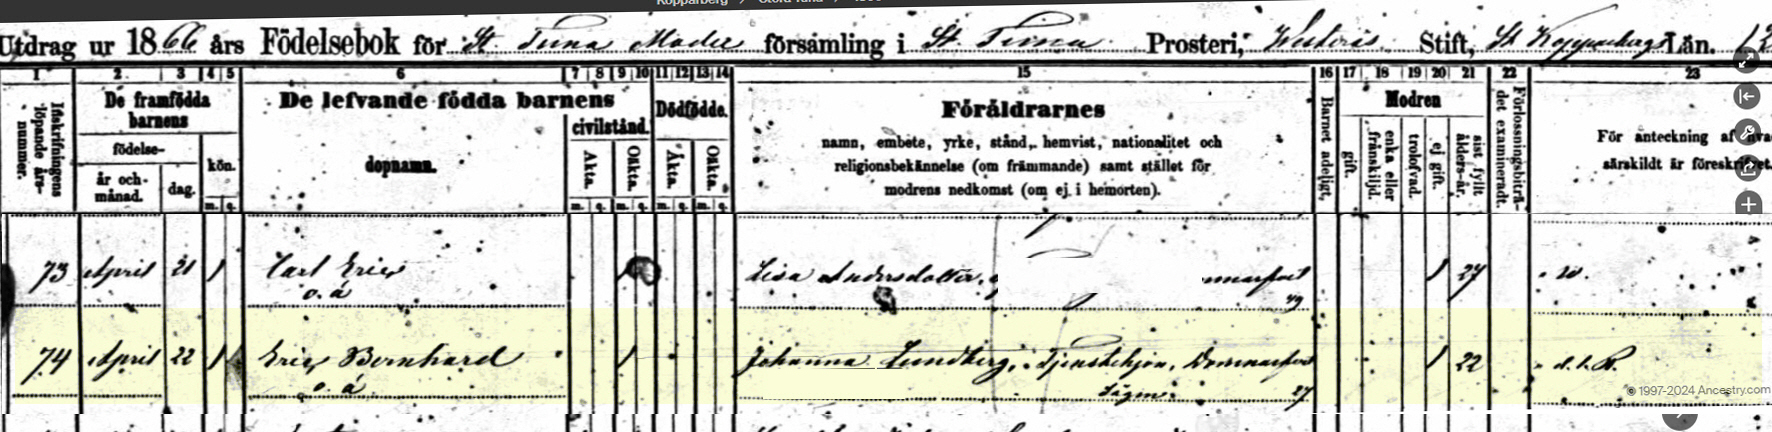 Kopparberg Stora Tuna
Utdrag ur 1866 års Födelsebok för St. Tuna Moder församling i St. Tuna Prosteri, Westerås Stift, St Kopparbergs Län.
1 2. 3 4 5 6 7 8 9 10 11 12 13 14 15 16 17 18 19 20 21 22 23
Inskrifningens löpande års-nummer.
De framfödda barnens
födelse-
år och månad.
dag.
kön.
m. q.
De lefvande födda barnens
dopnamn.
civilstånd.
Äkta.
Oäkta.
m. q. m. q.
Dödfödde.
Äkta.
Oäkta.
m. q. m. q.
Föräldrarnes
namn, embete, yrke, stånd, hemvist, nationalitet och
religionsbekännelse (om främmande) samt stället för
modrens nedkomst (om ej i hemorten).
Barnet adeligt.
Modren
gift.
enka eller frånskiljd.
trolofvad.
ej gift.
sist fyllt ålders-år.
Förlossningsbiträ-det examineradt.
För anteckning af
särskildt är föreskrifvet.
73 April 21 1 Carl Eric Lisa Andersdotter, 1 27
o. ä 49
74 April 22 1 Eric Bernhard 1 Johanna Lundberg, Tjenstehjon, Domnarfvet 1 22 d. l. R.
o. ä Sågen. 27
© 1997-2024 Ancestry.com